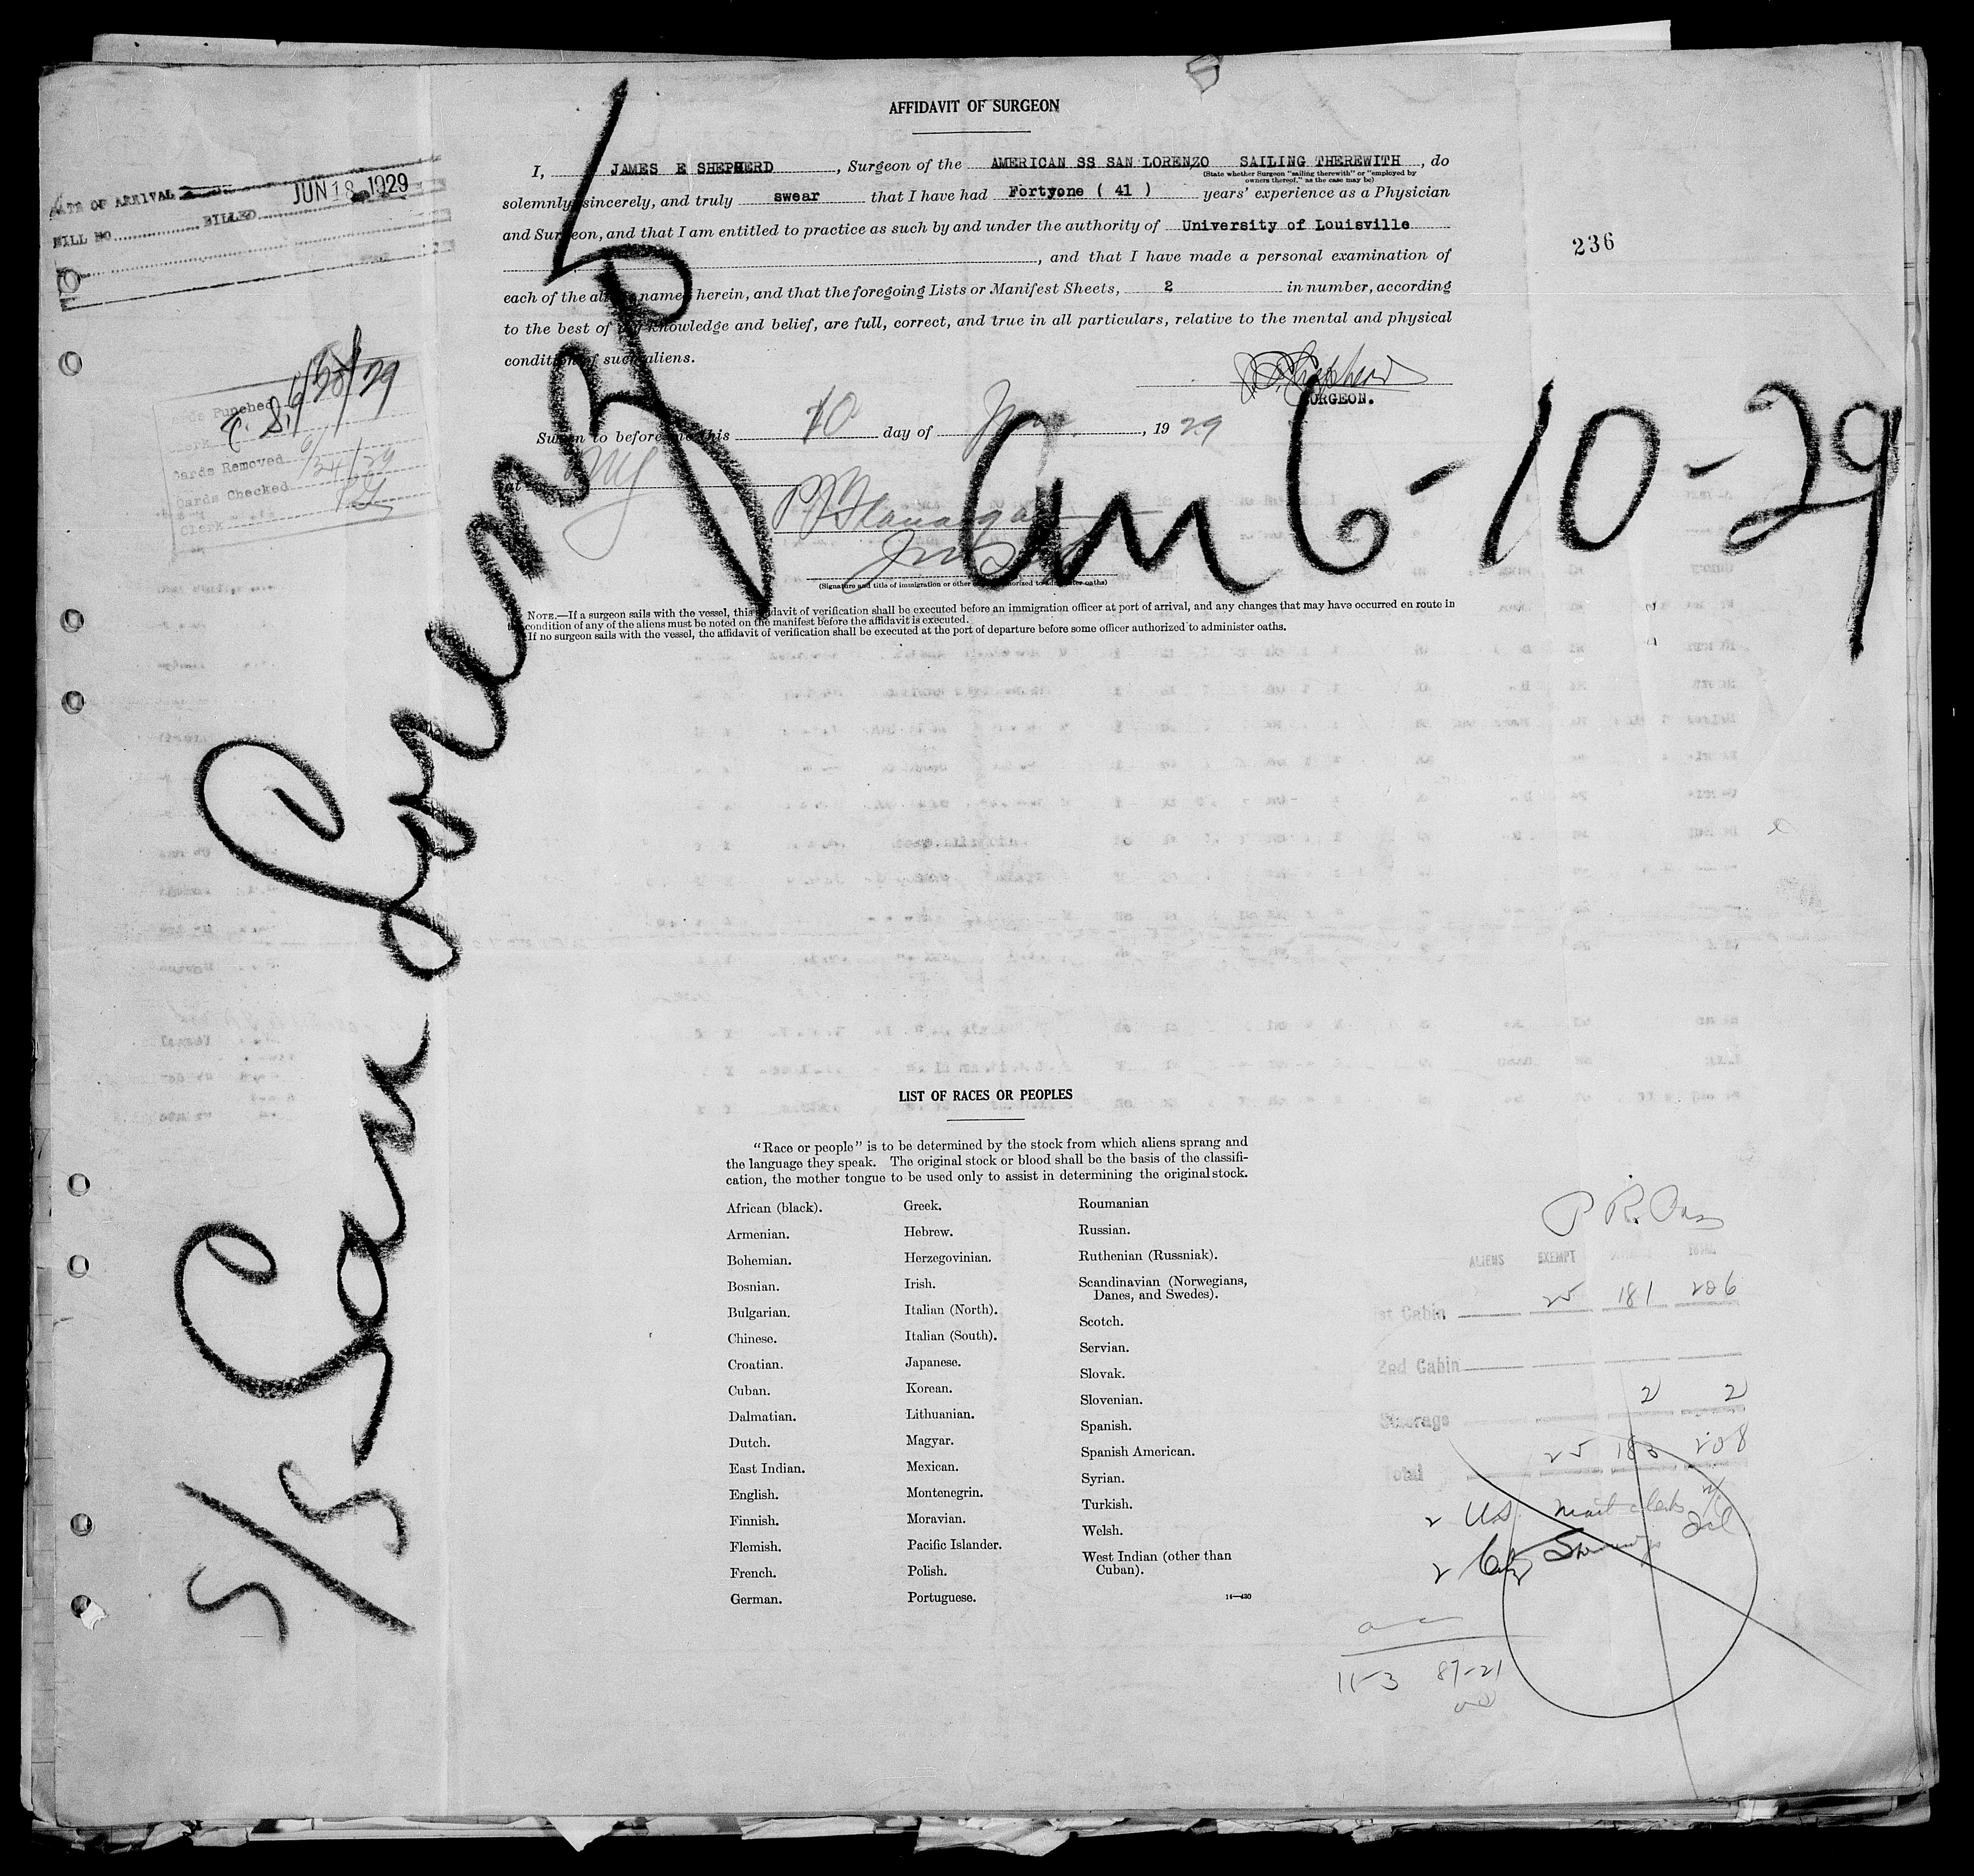 AFFIDAVIT OF SURGEON
I, JAMES E SHEPHERD, Surgeon of the AMERICAN SS SAN LORENZO SAILING THEREWITH, do
(State whether Surgeon "sailing therewith" or "employed by
owners thereof," as the case may be)
solemnly, sincerely, and truly swear that I have had Fortyone ( 41 ) years' experience as a Physician
and Surgeon, and that I am entitled to practice as such by and under the authority of University of Louisville
, and that I have made a personal examination of
each of the aliens named herein, and that the foregoing Lists or Manifest Sheets, 2 in number, according
to the best of my knowledge and belief, are full, correct, and true in all particulars, relative to the mental and physical
condition of such aliens.
SURGEON.
Sworn to before me this 10 day of June, 1929
at NY
(Signature and title of immigration or other officer authorized to administer oaths)
NOTE.—If a surgeon sails with the vessel, this affidavit of verification shall be executed before an immigration officer at port of arrival, and any changes that may have occurred en route in
the condition of any of the aliens must be noted on the manifest before the affidavit is executed.
If no surgeon sails with the vessel, the affidavit of verification shall be executed at the port of departure before some officer authorized to administer oaths.
DATE OF ARRIVAL
JUN 18 1929
BILL NO. BILLED
236
Cards Punched 6/20/29
Clerk
Cards Removed 6/24/29
Cards Checked
Clerk
S/S San Lorenzo
6-10-29
LIST OF RACES OR PEOPLES
"Race or people" is to be determined by the stock from which aliens sprang and
the language they speak. The original stock or blood shall be the basis of the classifi-
cation, the mother tongue to be used only to assist in determining the original stock.
African (black).
Armenian.
Bohemian.
Bosnian.
Bulgarian.
Chinese.
Croatian.
Cuban.
Dalmatian.
Dutch.
East Indian.
English.
Finnish.
Flemish.
French.
German.
Greek.
Hebrew.
Herzegovinian.
Irish.
Italian (North).
Italian (South).
Japanese.
Korean.
Lithuanian.
Magyar.
Mexican.
Montenegrin.
Moravian.
Pacific Islander.
Polish.
Portuguese.
Roumanian
Russian.
Ruthenian (Russniak).
Scandinavian (Norwegians,
Danes, and Swedes).
Scotch.
Servian.
Slovak.
Slovenian.
Spanish.
Spanish American.
Syrian.
Turkish.
Welsh.
West Indian (other than
Cuban).
14—430
ALIENS EXEMPT TOTAL
1st Cabin 25 181 206
2nd Cabin
Steerage 2 2
Total 25 183 208
2 US mail clerks
2
11-3 87-21